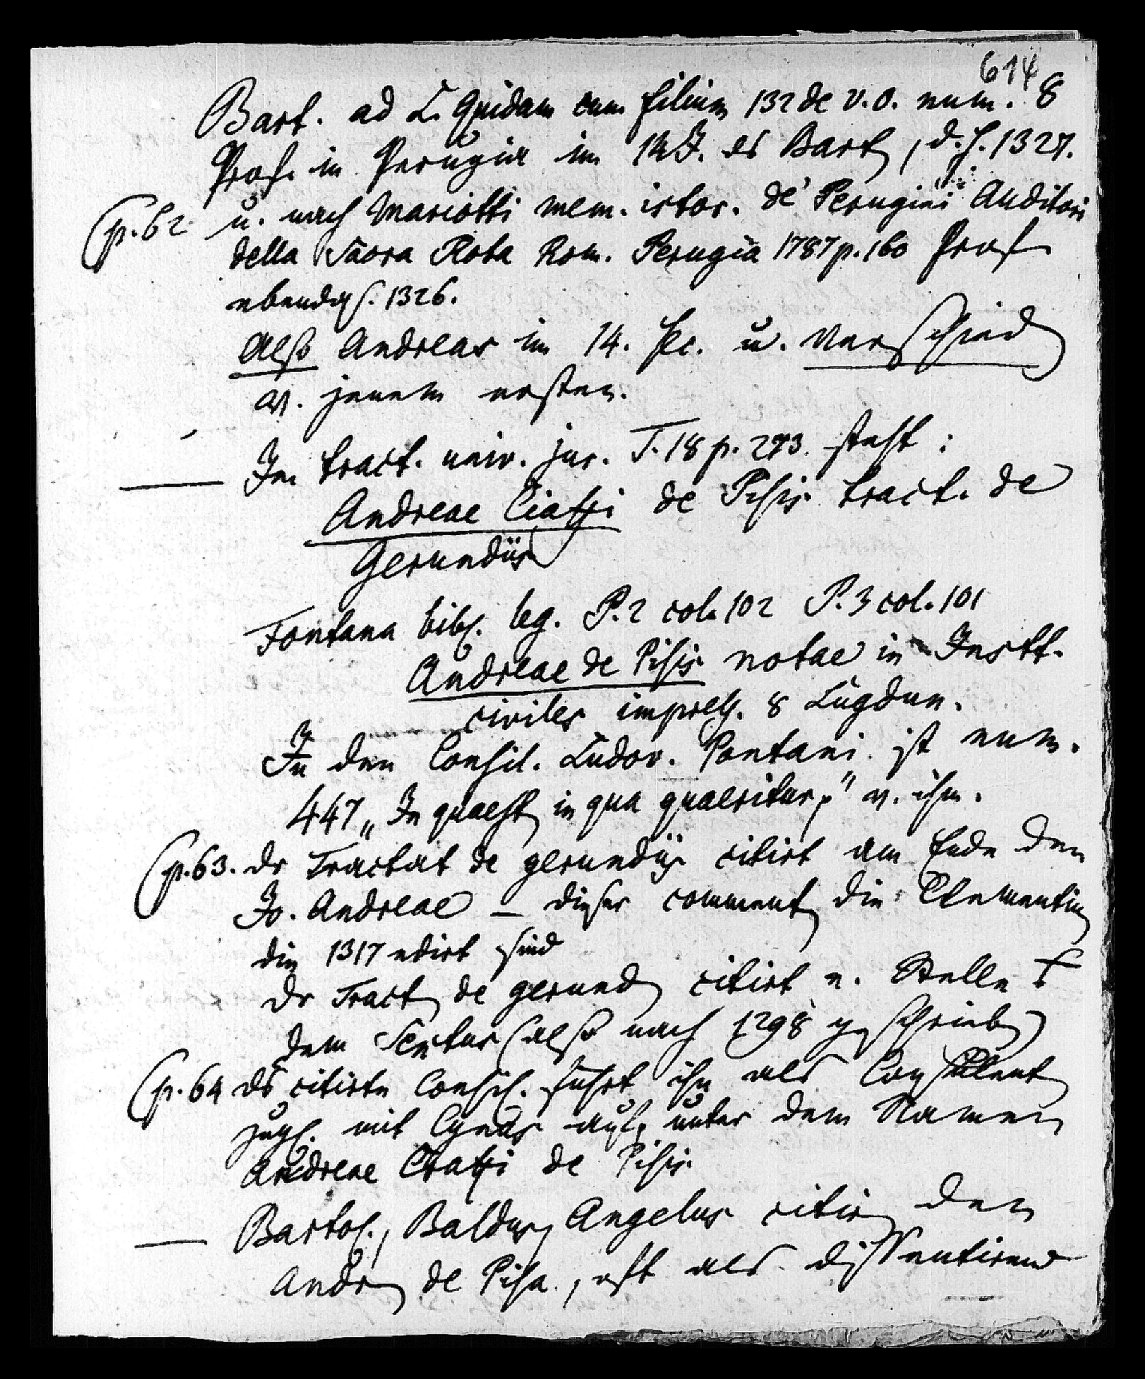 614
Bart. ad L. Quidam cum filium 132 de v.o. num. 8
Prof. in Perugia im 14 J. des Bart, d.h. 1327.
(p.62 u. nach Mariotti mem. istor. de' Perugini Auditori
della Sacra Rota Rom. Perugia 1787 p. 160 Prof
ebendas. 1326.
Also Andreas im 14. sec. u. verschied
v. jenem ersten.
— Im tract. univ. jur. T. 18 p. 293 steht:
Andreae Ciaffi de Pisis tract. de
Gerundiis
Fontana bibl. leg. P. 2 col. 102 P. 3 col. 101
Andreae de Pisis notae in Instt.
civiles impress. 8 Lugdun.
In den Consil. Ludov. Pontani ist num.
447 „In quaest in qua quaeritur," v. ihm.
(p.63. dr Tractat de gerundiis citirt am Ende den
Jo. Andreae — dieser comment die Clementin
die 1317 edirt sind
dr Tract de gerund citirt e. Stelle
dem Sextus (also nach 1298 geschrieb)
(p.64 ds citirte Consil. führt ihn als Consulent
zugl. mit Cynus auf, unter dem Namen
Andreae Ciaffi de Pisis
— Bartol., Baldus, Angelus citir den
Andr de Pisa, oft als dissentirend